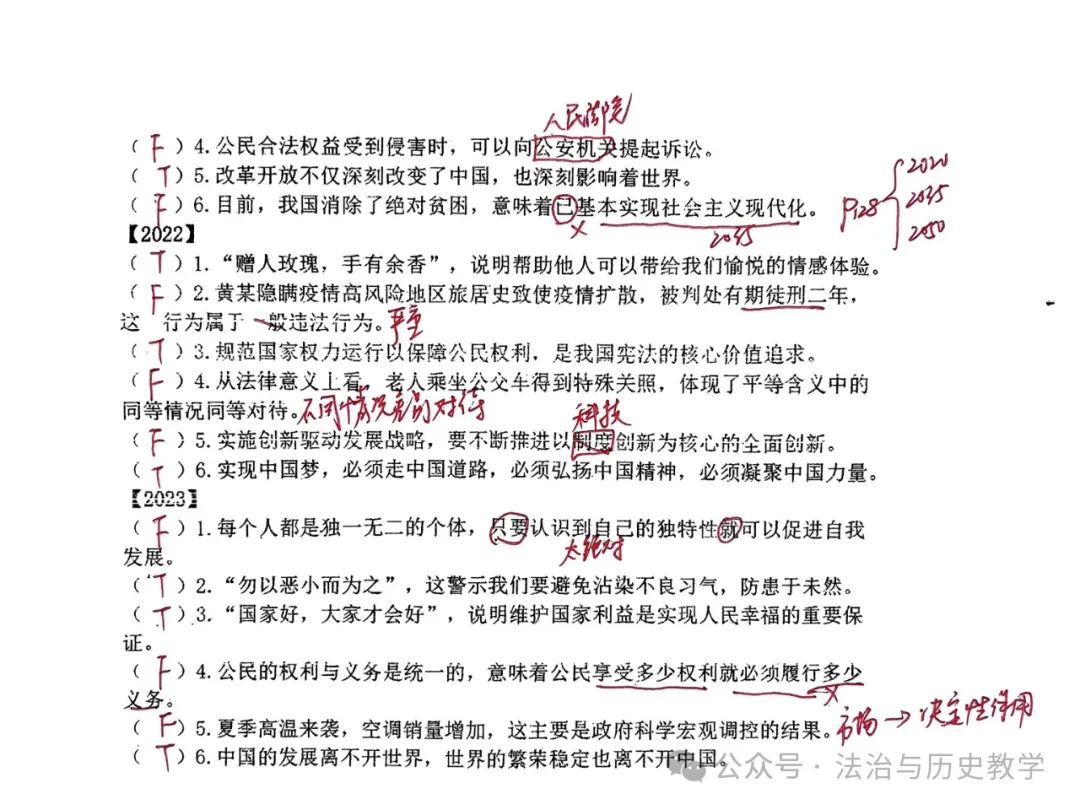 人民法院
（F）4.公民合法权益受到侵害时，可以向公安机关提起诉讼。
（T）5.改革开放不仅深刻改变了中国，也深刻影响着世界。
（F）6.目前，我国消除了绝对贫困，意味着已基本实现社会主义现代化。
×
2035
P128
2020
2035
2050
【2022】
（T）1.“赠人玫瑰，手有余香”，说明帮助他人可以带给我们愉悦的情感体验。
（F）2.黄某隐瞒疫情高风险地区旅居史致使疫情扩散，被判处有期徒刑二年，
这 行为属于一般违法行为。严重
（T）3.规范国家权力运行以保障公民权利，是我国宪法的核心价值追求。
（F）4.从法律意义上看，老人乘坐公交车得到特殊关照，体现了平等含义中的
同等情况同等对待。不同情况差别对待
科技
（F）5.实施创新驱动发展战略，要不断推进以制度创新为核心的全面创新。
（T）6.实现中国梦，必须走中国道路，必须弘扬中国精神，必须凝聚中国力量。
【2023】
（F）1.每个人都是独一无二的个体，只要认识到自己的独特性就可以促进自我
太绝对
发展。
（T）2.“勿以恶小而为之”，这警示我们要避免沾染不良习气，防患于未然。
（T）3.“国家好，大家才会好”，说明维护国家利益是实现人民幸福的重要保
证。
（F）4.公民的权利与义务是统一的，意味着公民享受多少权利就必须履行多少
义务。
×
（F）5.夏季高温来袭，空调销量增加，这主要是政府科学宏观调控的结果。市场→决定性作用
（T）6.中国的发展离不开世界，世界的繁荣稳定也离不开中国。
公众号·法治与历史教学